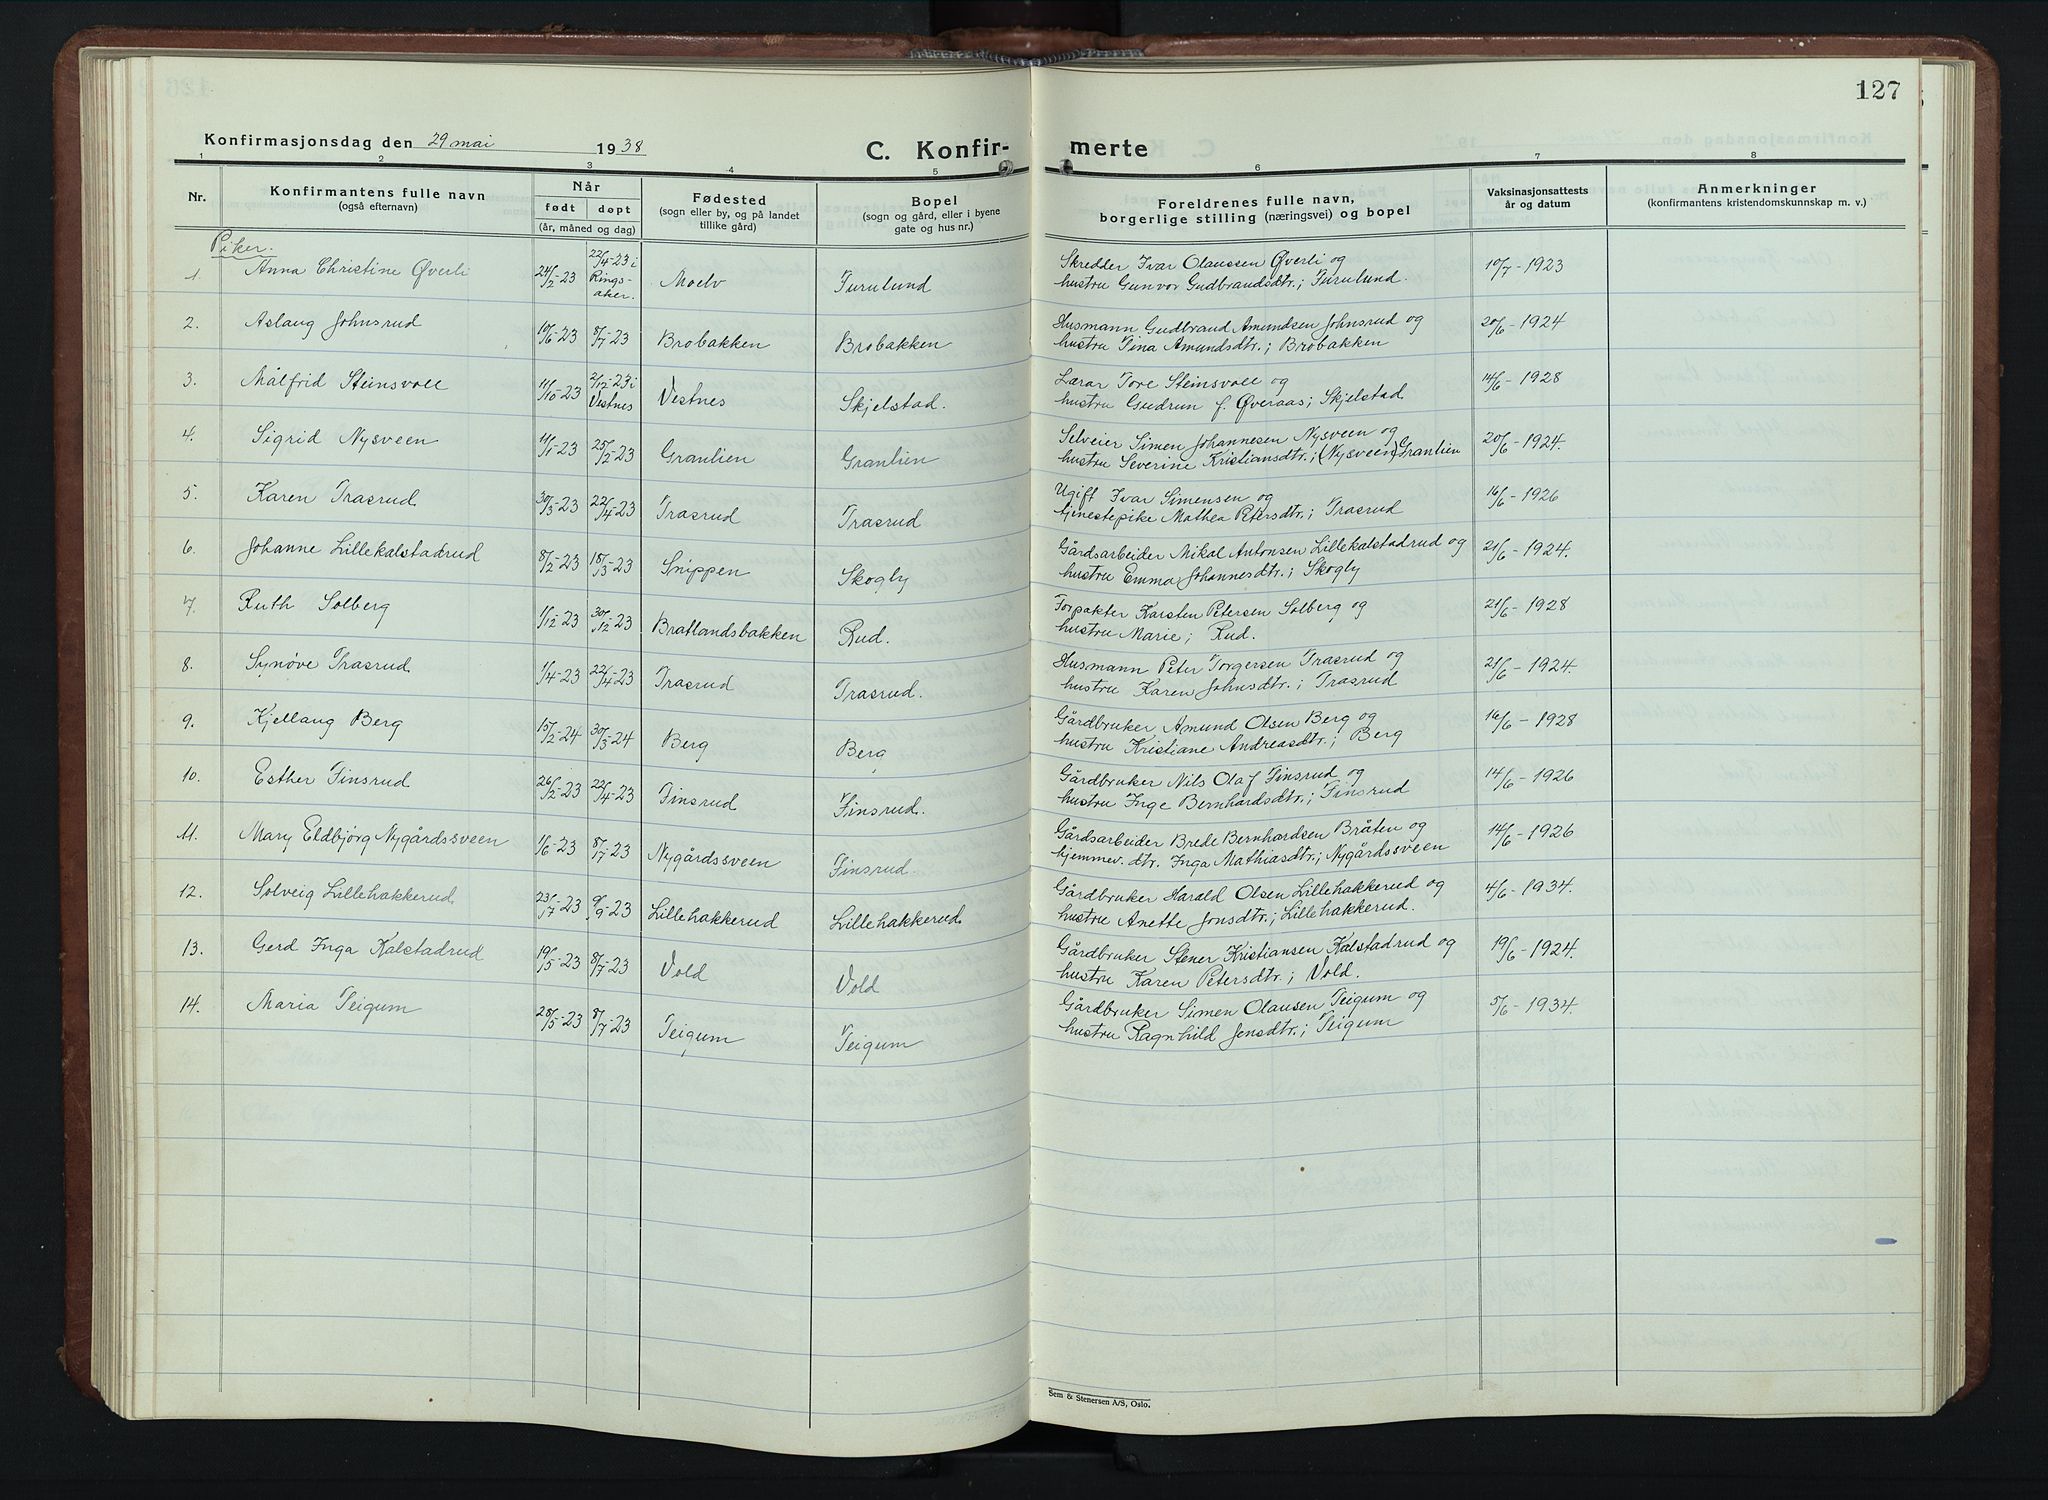 127
Konfirmasjonsdag den 29 mai 1938
C. Konfir- merte
1 2 3 4 5 6 7 8
Nr.
Konfirmantens fulle navn
(også efternavn)
Når
født døpt
(år, måned og dag)
Fødested
(sogn eller by, og på landet
tillike gård)
Bopel
(sogn og gård, eller i byene
gate og hus nr.)
Foreldrenes fulle navn,
borgerlige stilling (næringsvei) og bopel
Vaksinasjonsattests
år og datum
Anmerkninger
(konfirmantens kristendomskunnskap m. v.)
Piker.
1 Anna Christine Øverli 24/2-23 22/4-23 i Rings-aker. Moelv Furulund Skredder Ivar Olaussen Øverli og
hustru Gunvor Gudbrandsdtr.; Furulund. 10/7-1923
2. Aslaug Johnsrud 10/6-23 8/7-23 Brobakken Brobakken Husmann Gudbrand Amundsen Johnsrud og
hustru Tina Amundsdtr.; Brobakken 20/6-1924
3. Målfrid Steinsvoll 11/10-23 2/12-23 i Vestnes Vestnes Skjelstad. Lærar Tore Steinsvoll og
hustru Gudrun f. Øveraas; Skjelstad 14/6-1928
4. Sigrid Nysveen 11/1-23 25/2-23 Granlien Granlien Selveier Simen Johannesen Nysveen og
hustru Severine Kristiansdtr.; (Nysveen) Granlien 20/6-1924.
5. Karen Trasrud 30/3-23 22/4-23 Trasrud Trasrud Ugift Ivar Simensen og
tjenestepike Mathea Petersdtr.; Trasrud 16/6-1926
6. Johanne Lillekalstadrud 8/2-23 18/3-23 Snippen Skogly Gårdsarbeider Mikal Antonsen Lillekalstadrud og
hustru Emma Johannesdtr.; Skogly 21/6-1924.
7. Ruth Solberg 1/12-23 30/12-23 Bratlandsbakken Rud. Forpakter Karsten Petersen Solberg og
hustru Marie; Rud. 21/6-1928
8. Synøve Trasrud 1/4-23 22/4-23 Trasrud Trasrud. Husmann Peter Torgersen Trasrud og
hustru Karen Johnsdtr.; Trasrud 21/6-1924.
9. Kjellaug Berg 15/2-24 30/3-24 Berg Berg Gårdbruker Amund Olsen Berg og
hustru Kristiane Andreasdtr.; Berg 16/6-1928
10. Esther Finsrud 26/2-23 22/4-23 Finsrud Finsrud. Gårdbruker Nils Olaf Finsrud og
hustru Inge Bernhardsdtr.; Finsrud 14/6-1926
11. Mary Eldbjørg Nygårdssveen 1/6-23 8/7-23 Nygårdssveen Finsrud. Gårdsarbeider Brede Bernhardsen Bråten og
hjemmev. dtr. Inga Mathiasdtr.; Nygårdssveen 14/6-1926
12. Solveig Lillehakkerud 23/7-23 9/9-23 Lillehakkerud Lillehakkerud Gårdbruker Harald Olsen Lillehakkerud og
hustru Anette Jonsdtr.; Lillehakkerud. 4/6-1934.
13. Gerd Inga Kalstadrud 19/5-23 8/7-23 Vold Vold Gårdbruker Stener Kristiansen Kalstadrud og
hustru Karen Petersdtr.; Vold. 19/6-1924.
14. Maria Teigum 28/5-23 8/7-23 Teigum Teigum Gårdbruker Simen Olausen Teigum og
hustru Ragnhild Jensdtr.; Teigum 5/6-1934.
Sem & Stenersen A/S, Oslo.